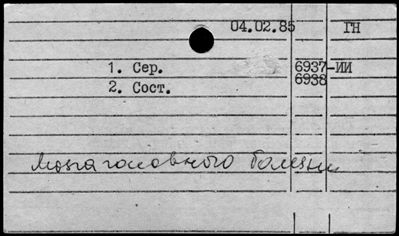 04.02.85 ГН
1. Сер. 6937-ИИ
2. Сост. 6938
Мозга головного болезни